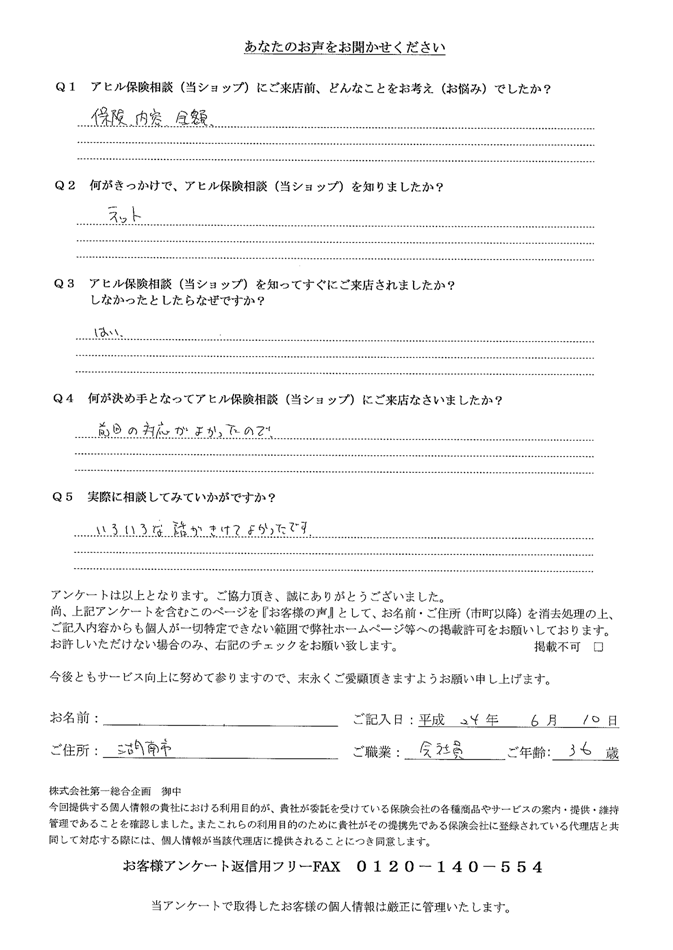 あなたのお声をお聞かせください
Q1 アヒル保険相談（当ショップ）にご来店前、どんなことをお考え（お悩み）でしたか？
保険 内容 金額、
Q2 何がきっかけで、アヒル保険相談（当ショップ）を知りましたか？
ネット
Q3 アヒル保険相談（当ショップ）を知ってすぐにご来店されましたか？
しなかったとしたらなぜですか？
はい、
Q4 何が決め手となってアヒル保険相談（当ショップ）にご来店なさいましたか？
前回の対応がよかったので、
Q5 実際に相談してみていかがですか？
いろいろな話がきけてよかったです。
アンケートは以上となります。ご協力頂き、誠にありがとうございました。
尚、上記アンケートを含むこのページを『お客様の声』として、お名前・ご住所（市町以降）を消去処理の上、
ご記入内容からも個人が一切特定できない範囲で弊社ホームページ等への掲載許可をお願いしております。
お許しいただけない場合のみ、右記のチェックをお願い致します。 掲載不可 □
今後ともサービス向上に努めて参りますので、末永くご愛顧頂きますようお願い申し上げます。
お名前： ご記入日：平成 24 年 6 月 10 日
ご住所： 湖南市 ご職業： 会社員 ご年齢： 36 歳
株式会社第一総合企画 御中
今回提供する個人情報の貴社における利用目的が、貴社が委託を受けている保険会社の各種商品やサービスの案内・提供・維持
管理であることを確認しました。またこれらの利用目的のために貴社がその提携先である保険会社に登録されている代理店と共
同して対応する際には、個人情報が当該代理店に提供されることにつき同意します。
お客様アンケート返信用フリーFAX 0120－140－554
当アンケートで取得したお客様の個人情報は厳正に管理いたします。